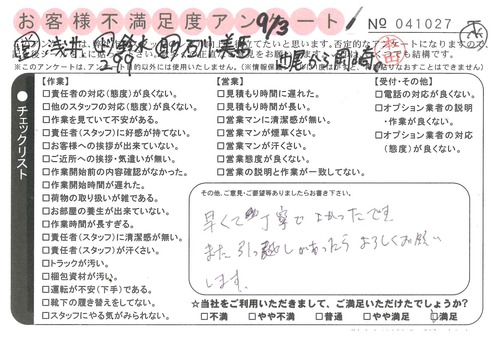 お客様不満足度アンケート
9/3
No 041027
※このアンケートは、アンケート
チェックリスト
【作業】
□責任者の対応（態度）が良くない。
□他のスタッフの対応（態度）が良くない。
□作業を見ていて不安がある。
□責任者（スタッフ）に好感が持てない。
□お客様への挨拶が出来ていない。
□ご近所への挨拶・気遣いが無い。
□作業開始前の内容確認がなかった。
□作業開始時間が遅れた。
□荷物の取り扱いが雑である。
□お部屋の養生が出来ていない。
□作業時間が長すぎる。
□責任者（スタッフ）に清潔感が無い。
□責任者（スタッフ）が汗くさい。
□トラックが汚い。
□梱包資材が汚い。
□運転が不安（下手）である。
□靴下の履き替えをしてない。
□スタッフにやる気がみられない。
【営業】
□見積もり時間に遅れた。
□見積もり時間が長い。
□営業マンに清潔感が無い。
□営業マンが煙草くさい。
□営業マンが汗くさい。
□営業態度が良くない。
□営業の説明と作業が一致してない。
【受付・その他】
□電話の対応が良くない。
□オプション業者の説明
・作業が良くない。
□オプション業者の対応
（態度）が良くない。
その他、ご意見・ご要望等ありましたらお書き下さい。
早くて丁寧でよかったです
また引っ越しがあったらよろしくお願い
します。
☆当社をご利用いただきまして、ご満足いただけたでしょうか？
□不満 □やや不満 □普通 □やや満足 □満足